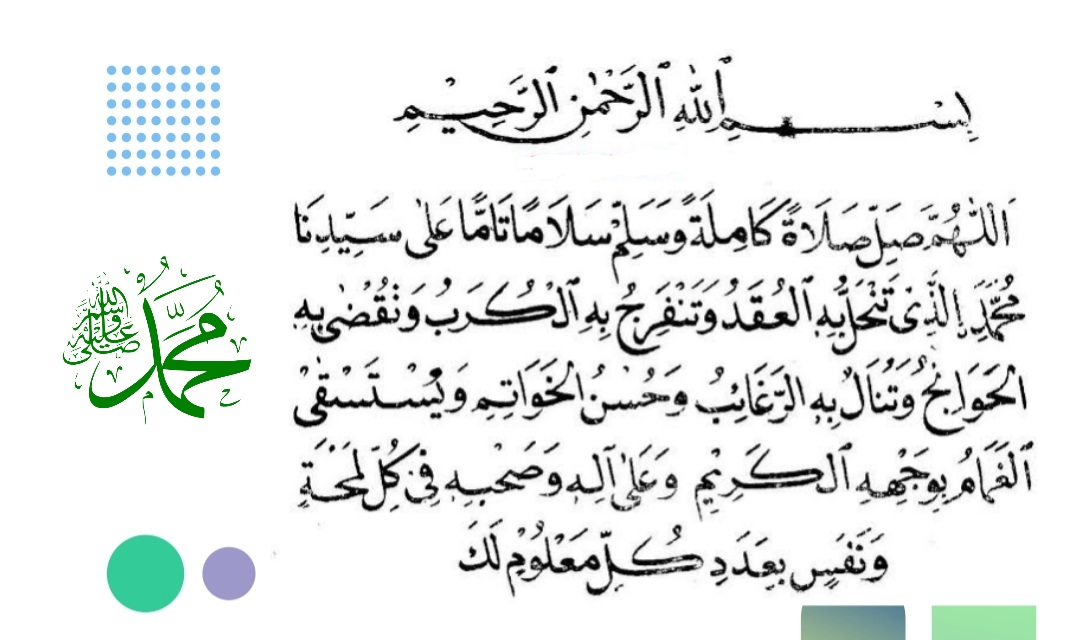 بِسْمِ ٱللهِ ٱلرَّحْمٰنِ ٱلرَّحِيمِ
اَللّٰهُمَّ صَلِّ صَلَاةً كَامِلَةً وَسَلِّمْ سَلَامًا تَامًّا عَلٰى سَيِّدِنَا
مُحَمَّدِ ࣙالَّذِىْ تَنْحَلُّ بِهِ ٱلْعُقَدُ وَتَنْفَرِجُ بِهِ ٱلْكُرَبُ وَتُقْضٰى بِهِ
الْحَوَائِجُ وَتُنَالُ بِهِ ٱلرَّغَائِبُ وَحُسْنُ الْخَوَاتِمِ وَيُسْتَسْقَىْ
ٱلْغَمَامُ بِوَجْهِهِ ٱلْكَرِيْمِ وَعَلٰى آلِهِ وَصَحْبِهِ فِىْ كُلِّ لَمْحَةٍ
وَنَفَسٍ بِعَدَدِ كُلِّ مَعْلُوْمٍ لَكَ
محمد صلى الله عليه وسلم